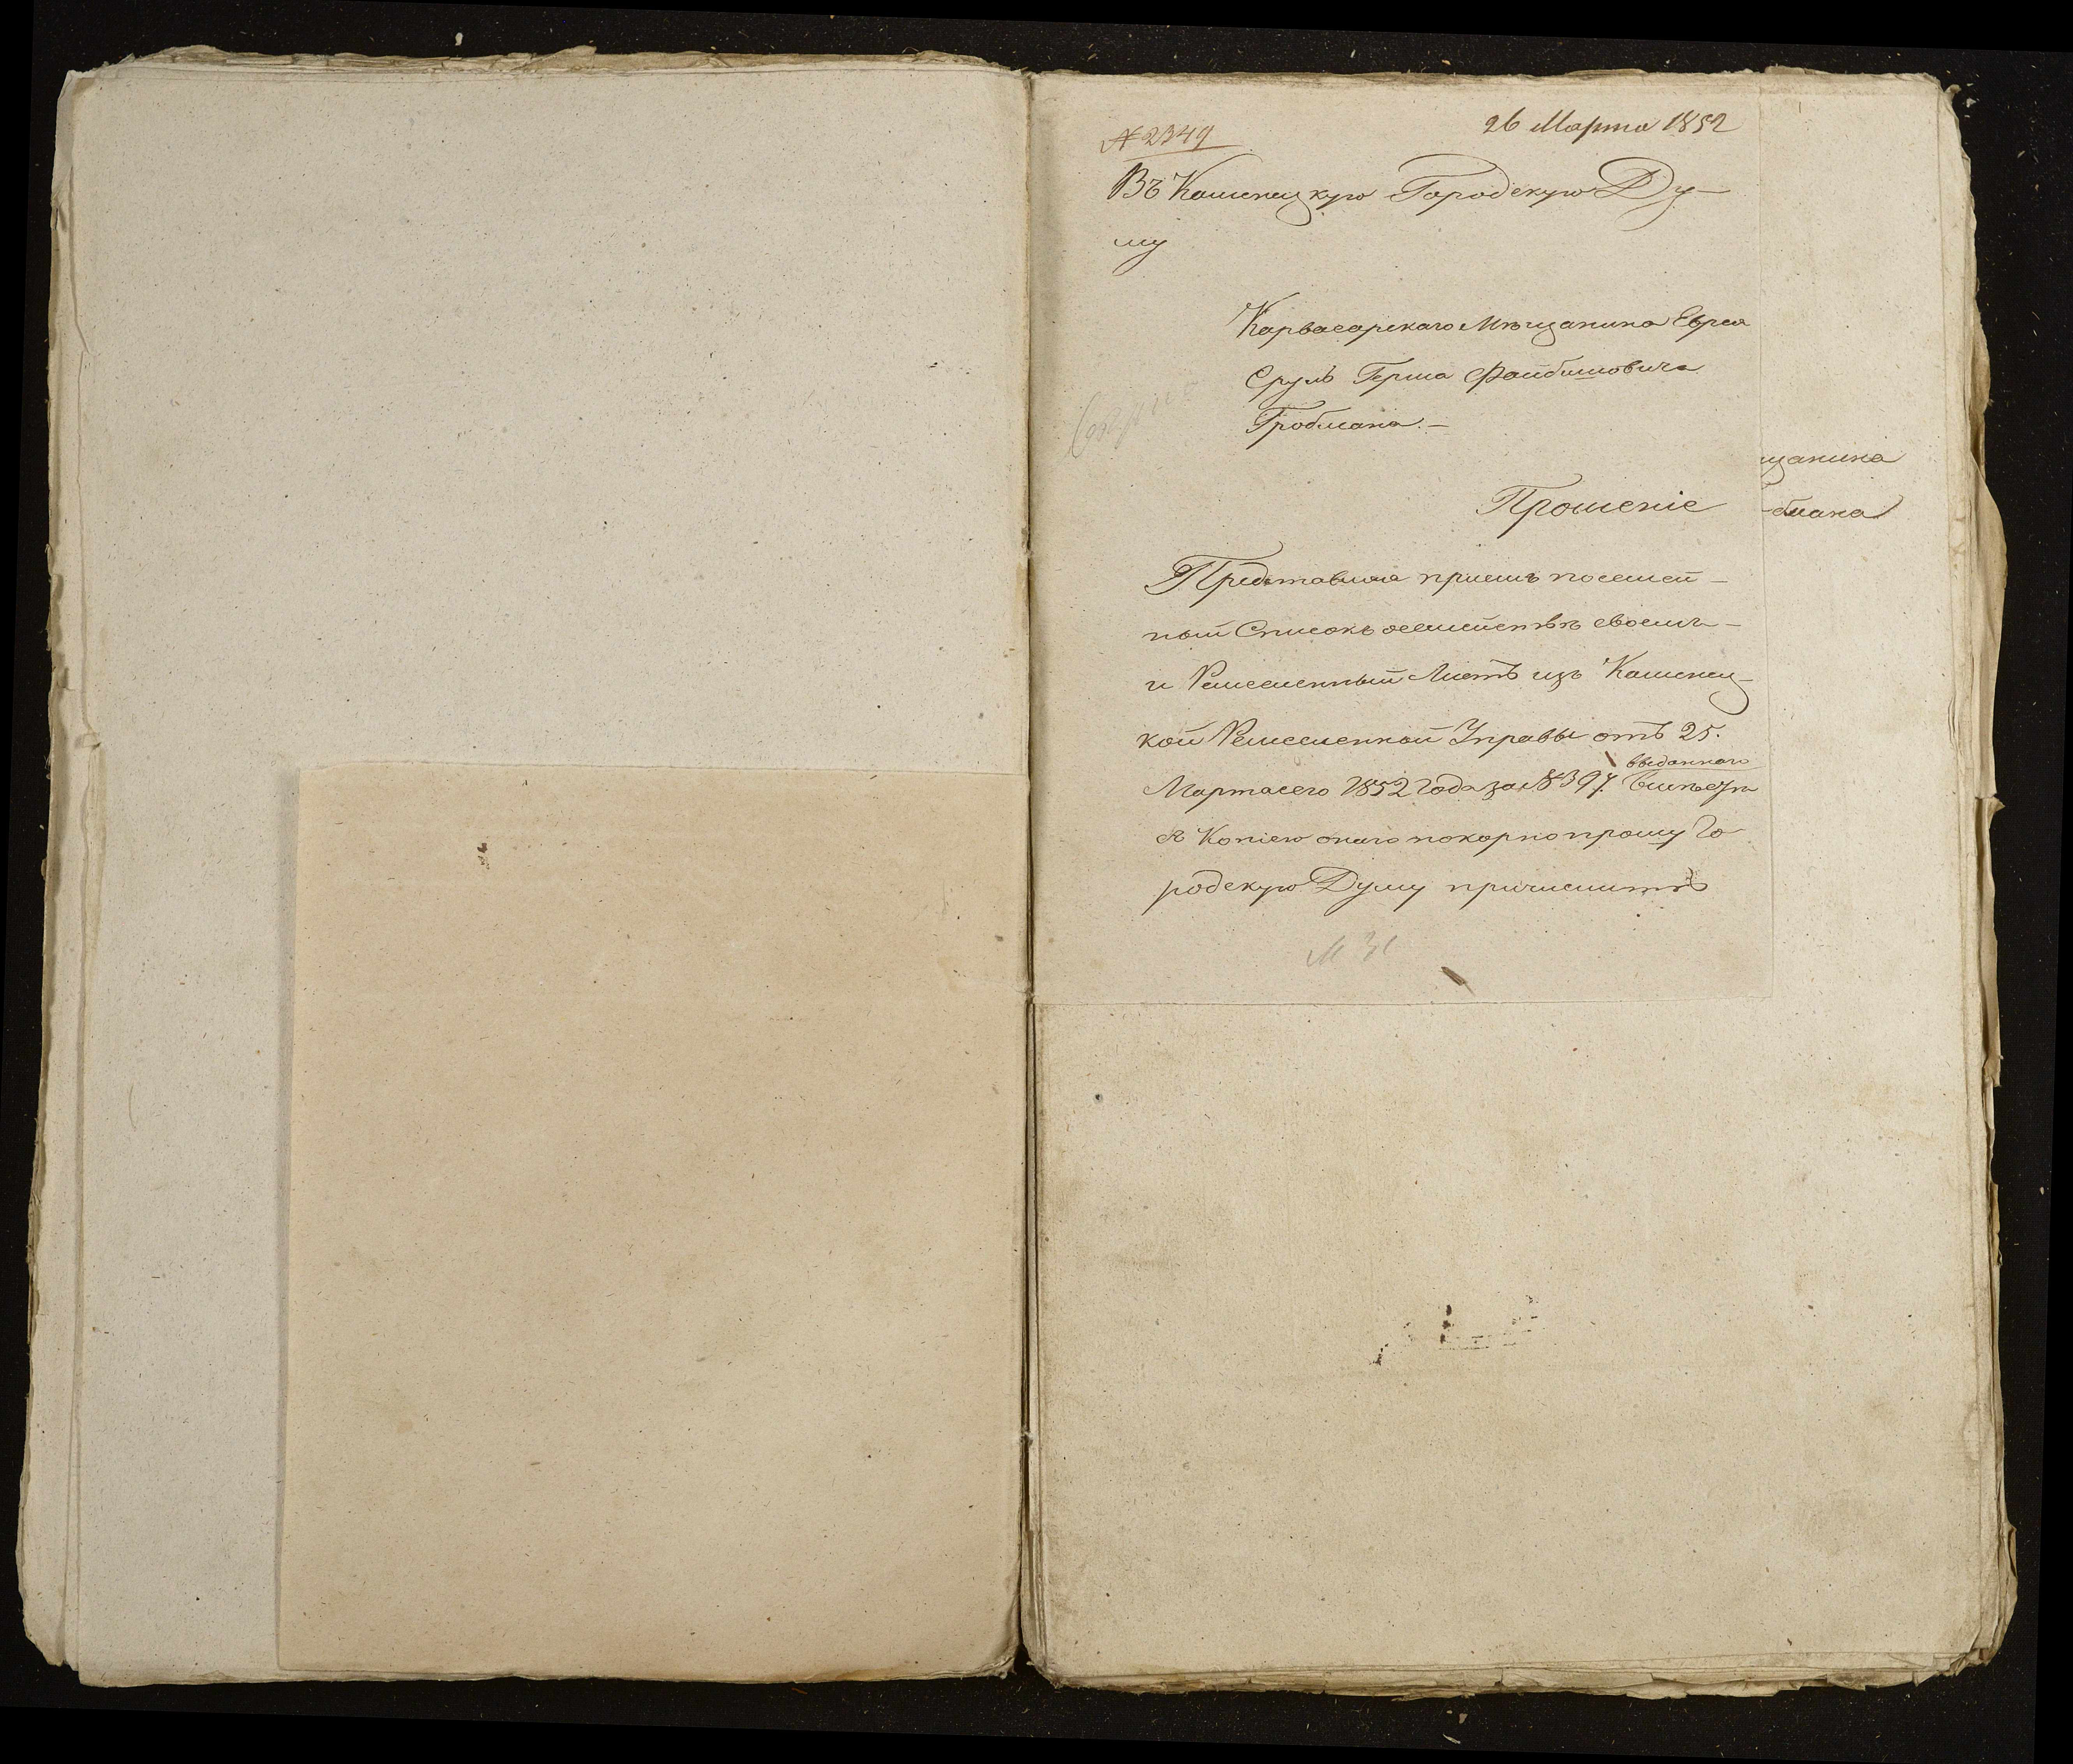 26 Марта 1852
№ 2349
Въ Каменецкую Городскую Ду-
му
Карвасарскаго Мѣщанина Еврея
Сруль Герша Файбишовича
Гробмана.-
щанина
-бмана
Прошеніе
Представляя присемъ посемей-
ный Списокъ осемействѣ своемъ-
и Ремесленный Листъ изъ Каменец-
кой Ремесленной Управы отъ 25.
выданнаго
Марта сего 1852 года за № 397 вмѣсте
съ Копіею онаго покорно прошу Го
родскую Думу причислить